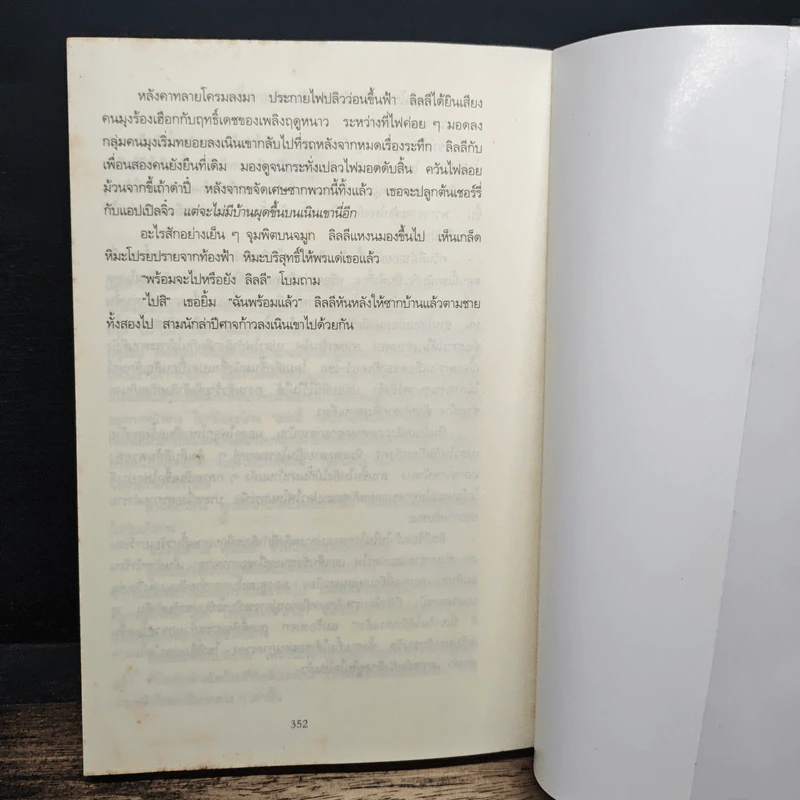 หลังคาทลายโครมลงมา ประกายไฟปลิวว่อนขึ้นฟ้า ลิลลีได้ยินเสียง
คนมุงร้องเฮือกกับฤทธิ์เดชของเพลิงฤดูหนาว ระหว่างที่ไฟค่อย ๆ มอดลง
กลุ่มคนมุงเริ่มทยอยลงเนินเขากลับไปที่รถหลังจากหมดเรื่องระทึก ลิลลีกับ
เพื่อนสองคนยังยืนที่เดิม มองดูจนกระทั่งเปลวไฟมอดดับสิ้น ควันไฟลอย
ม้วนจากขี้เถ้าดำปี๋ หลังจากขจัดเศษซากพวกนี้ทิ้งแล้ว เธอจะปลูกต้นเชอร์รี่
กับแอปเปิลจิ๋ว แต่จะไม่มีบ้านผุดขึ้นบนเนินเขานี่อีก
อะไรสักอย่างเย็น ๆ จุมพิตบนจมูก ลิลลีแหงนมองขึ้นไป เห็นเกล็ด
หิมะโปรยปรายจากท้องฟ้า หิมะบริสุทธิ์ให้พรแด่เธอแล้ว
"พร้อมจะไปหรือยัง ลิลลี" โบมถาม
"ไปสิ" เธอยิ้ม "ฉันพร้อมแล้ว" ลิลลีหันหลังให้ซากบ้านแล้วตามชาย
ทั้งสองไป สามนักล่าปีศาจก้าวลงเนินเขาไปด้วยกัน
352